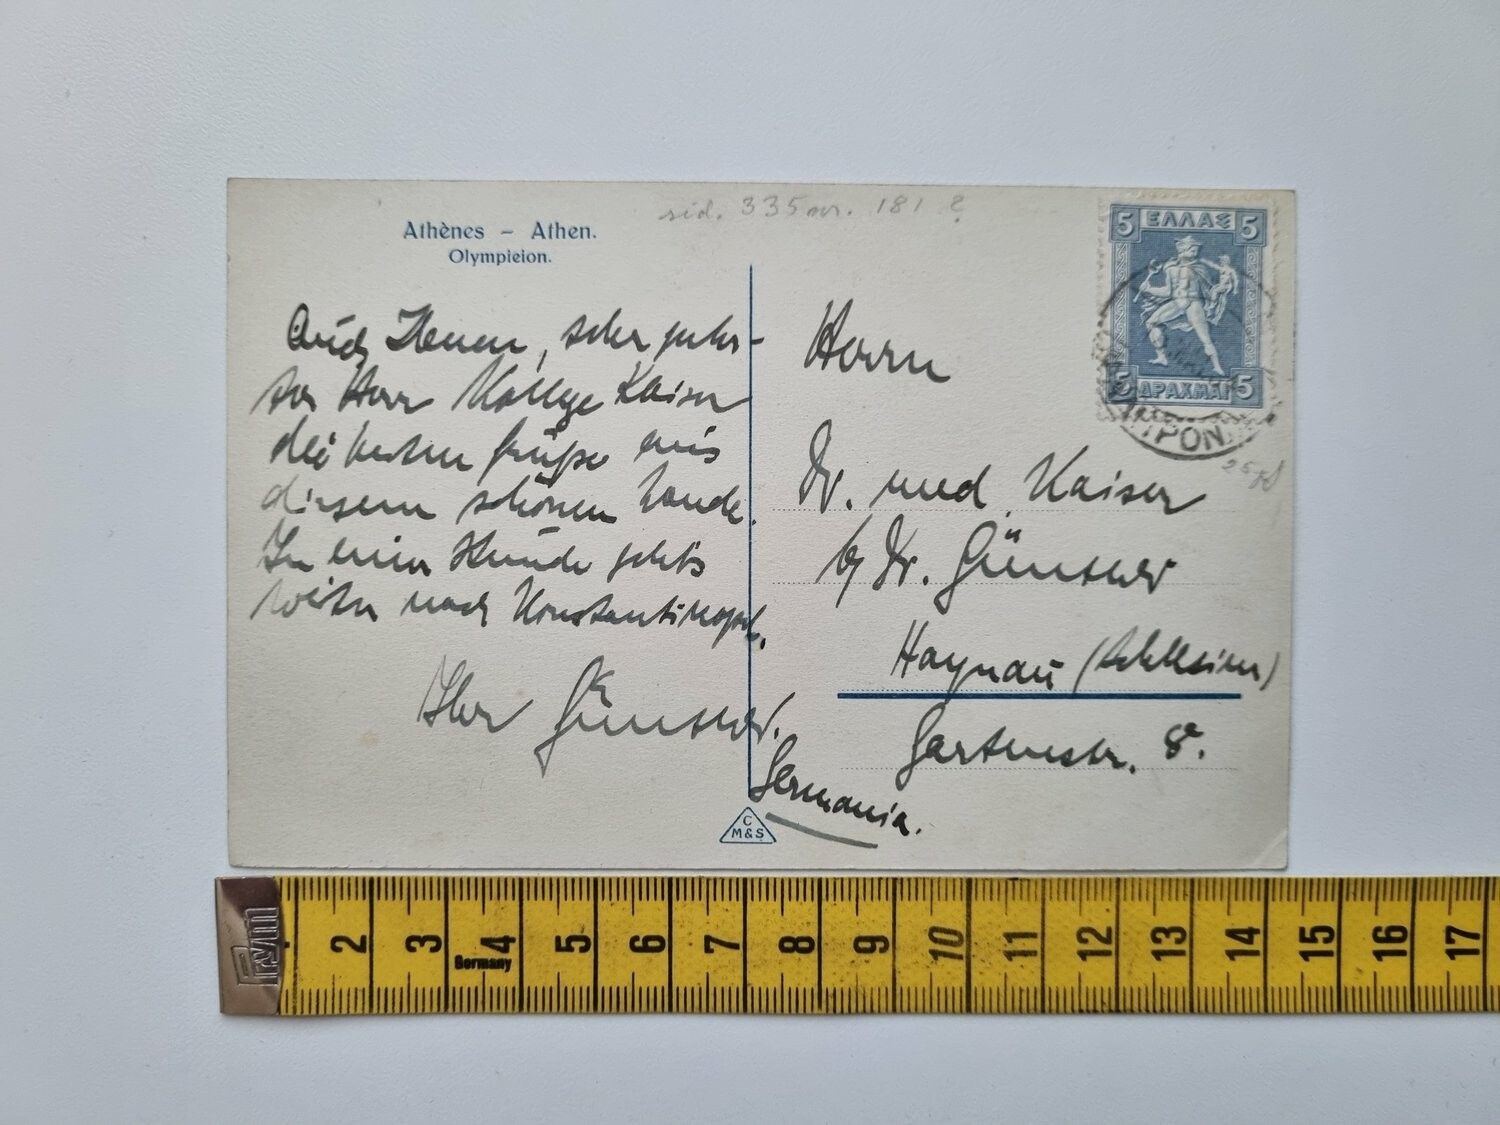 Athènes – Athen.
Olympieion.
sid. 335 nr. 181 ?
5 ΕΛΛΑΣ 5
5 ΔΡΑΧΜΑΙ 5
ΠΡΟΝ
Auch Ihnen, sehr geehr-
ter Herr Kollege Kaiser
die besten Grüße aus
diesem schönen Lande.
In einer Stunde geht's
weiter nach Konstantinopel.
Ihr Günther.
Herrn
Dr. med. Kaiser
b/ Dr. Günther
Haynau (Schlesien)
Gartenstr. 8ª.
Germania.
C
M&S
Prym
2 3 4 5 6 7 8 9 10 11 12 13 14 15 16 17
Germany